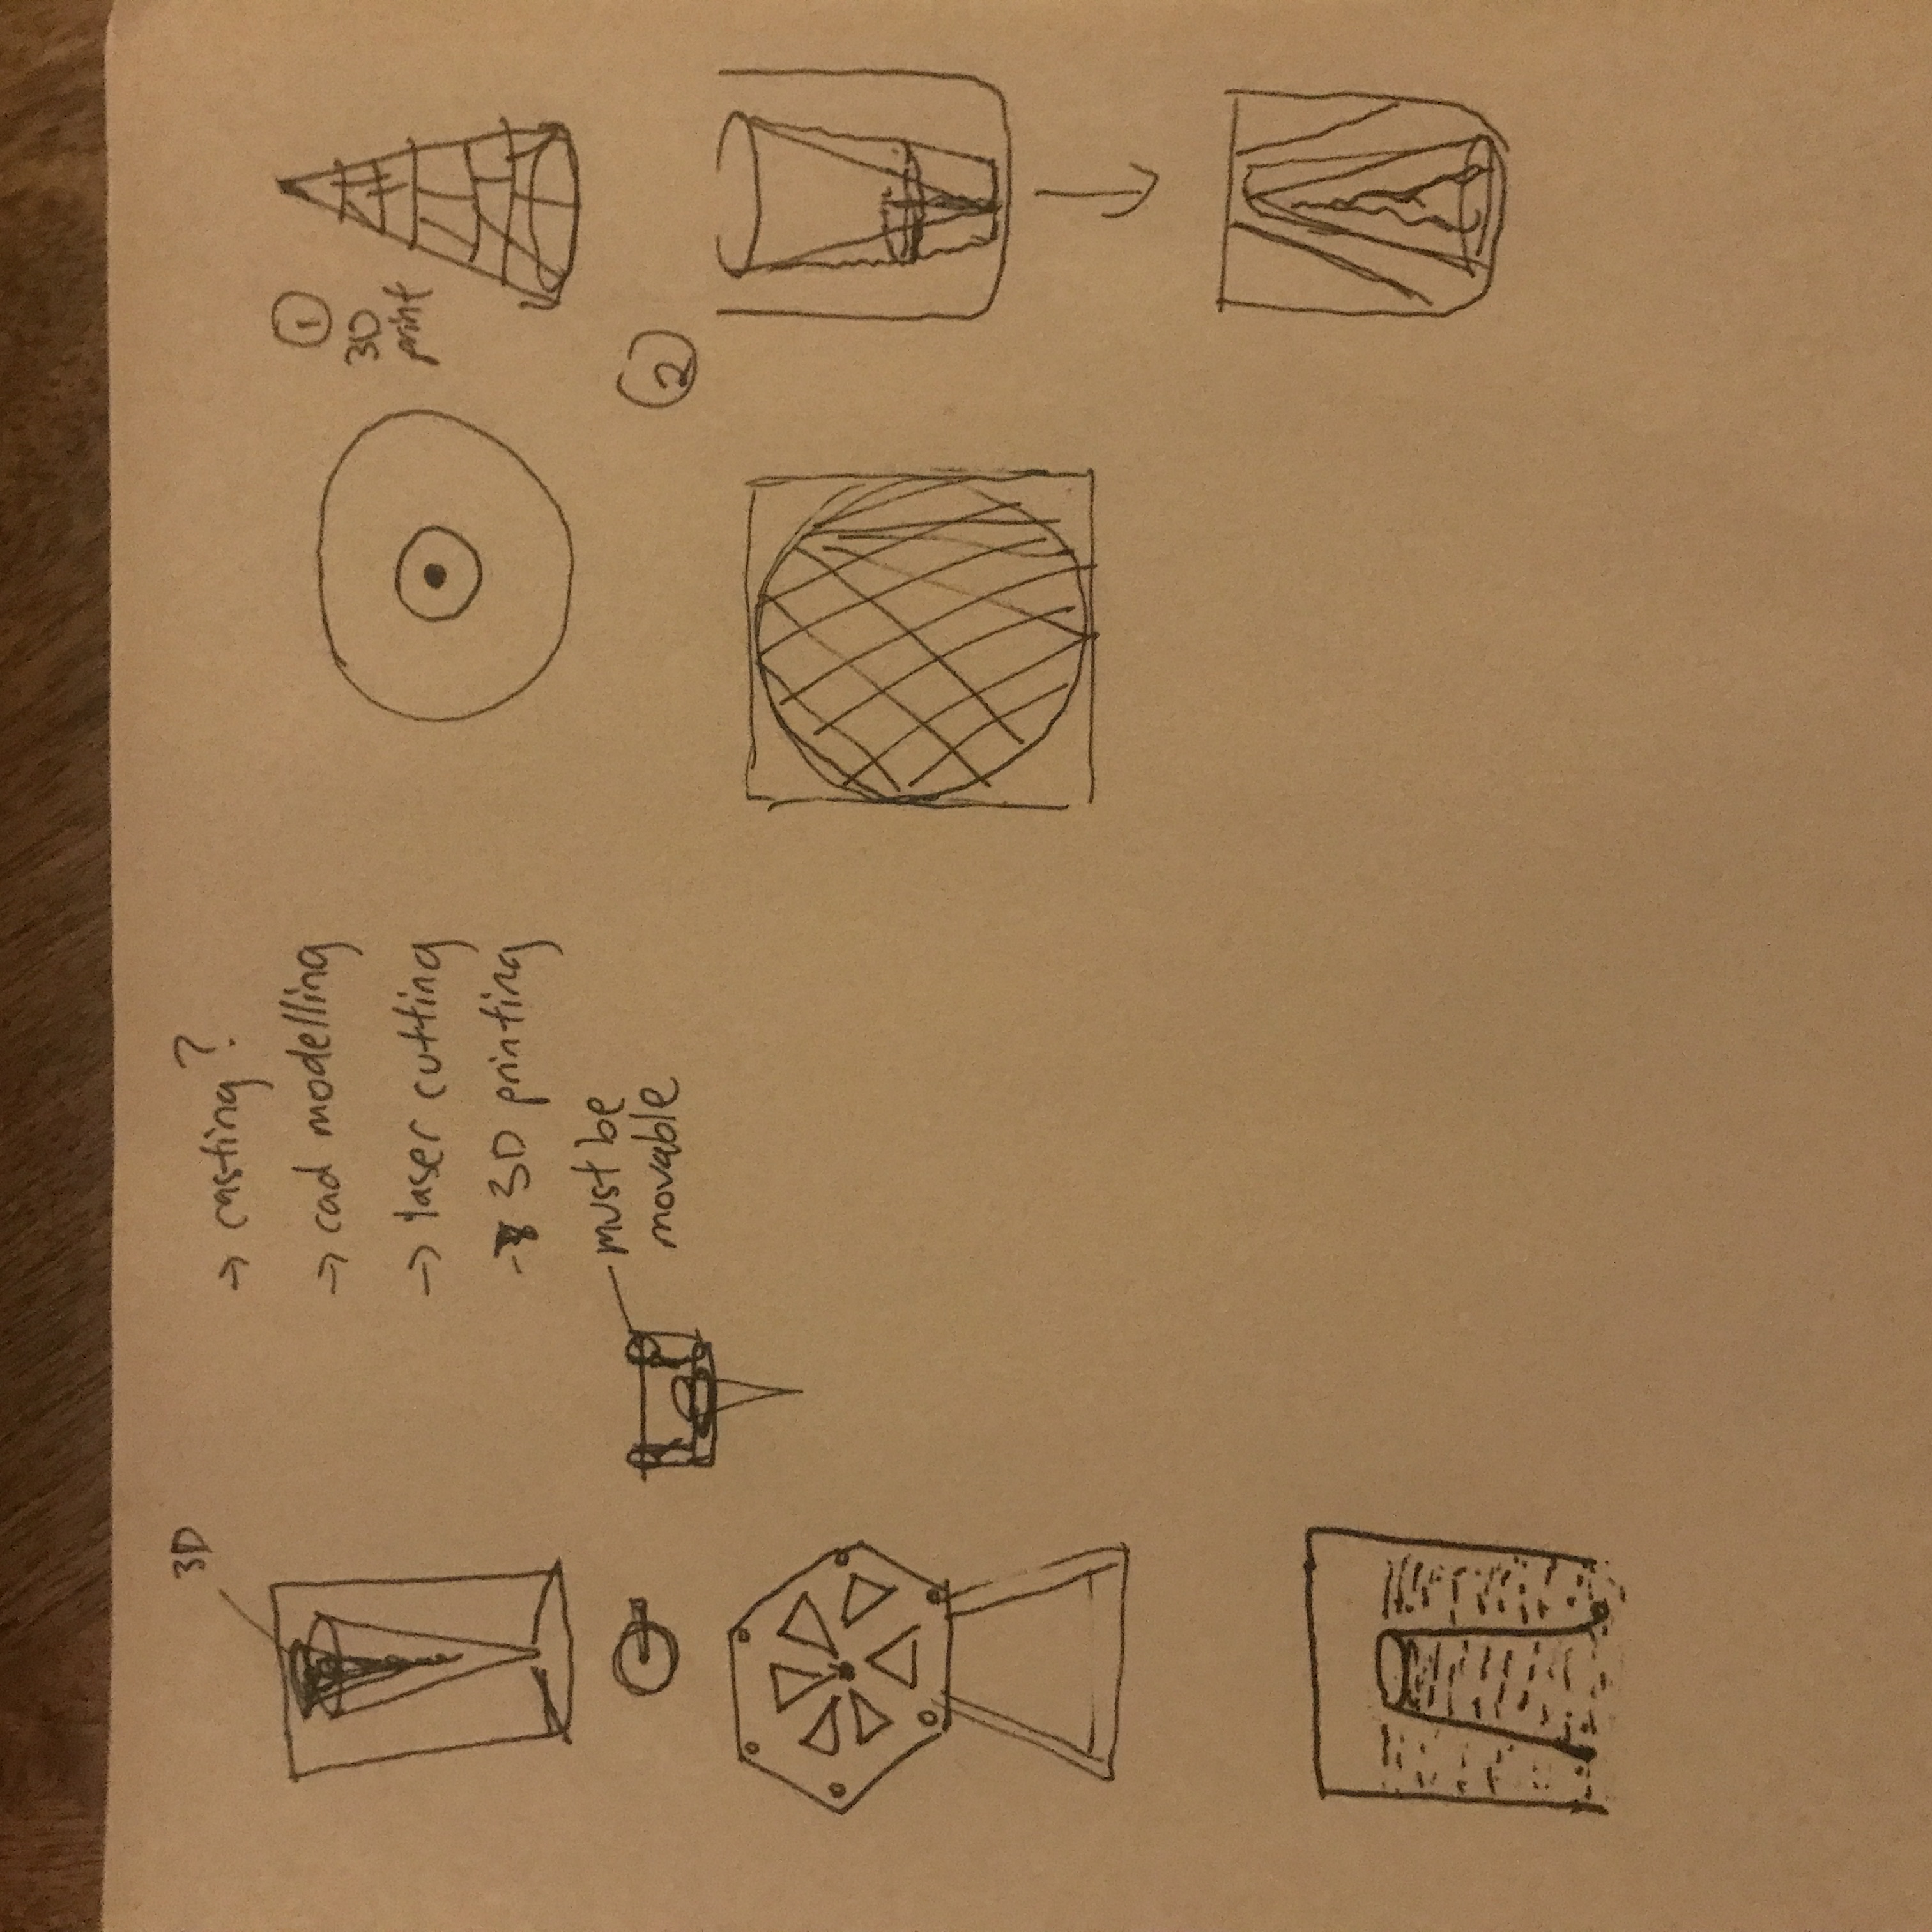 3D
→ casting?
→ cad modelling
→ laser cutting
→ 3D printing
must be
movable
1
3D
print
2